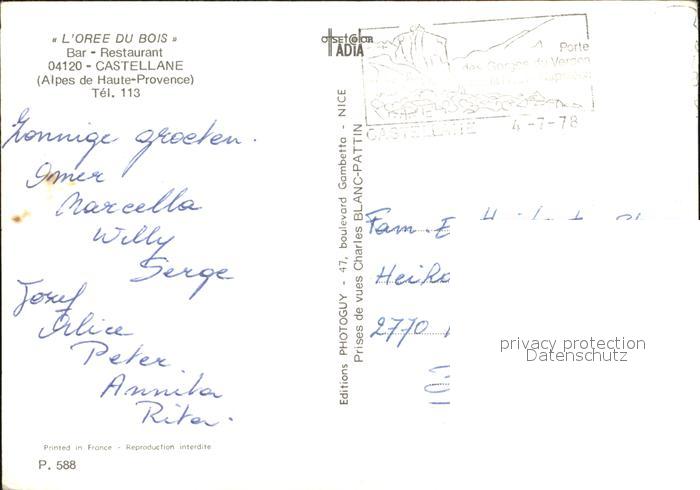 « L'OREE DU BOIS »
Bar - Restaurant
04120 - CASTELLANE
(Alpes de Haute-Provence)
Tél. 113
Zonnige groeten.
Omer
Marcella
Willy
Serge
Josef
Alice
Peter
Annita
Rita.
Printed in France - Reproduction interdite
P. 588
offset color
TADIA
Editions PHOTOGUY - 47, boulevard Gambetta - NICE
Prises de vues Charles BLANC-PATTIN
Porte
des Gorges du Verdon
CASTELLANE 4-7-78
Fam. E
2770
privacy protection
Datenschutz